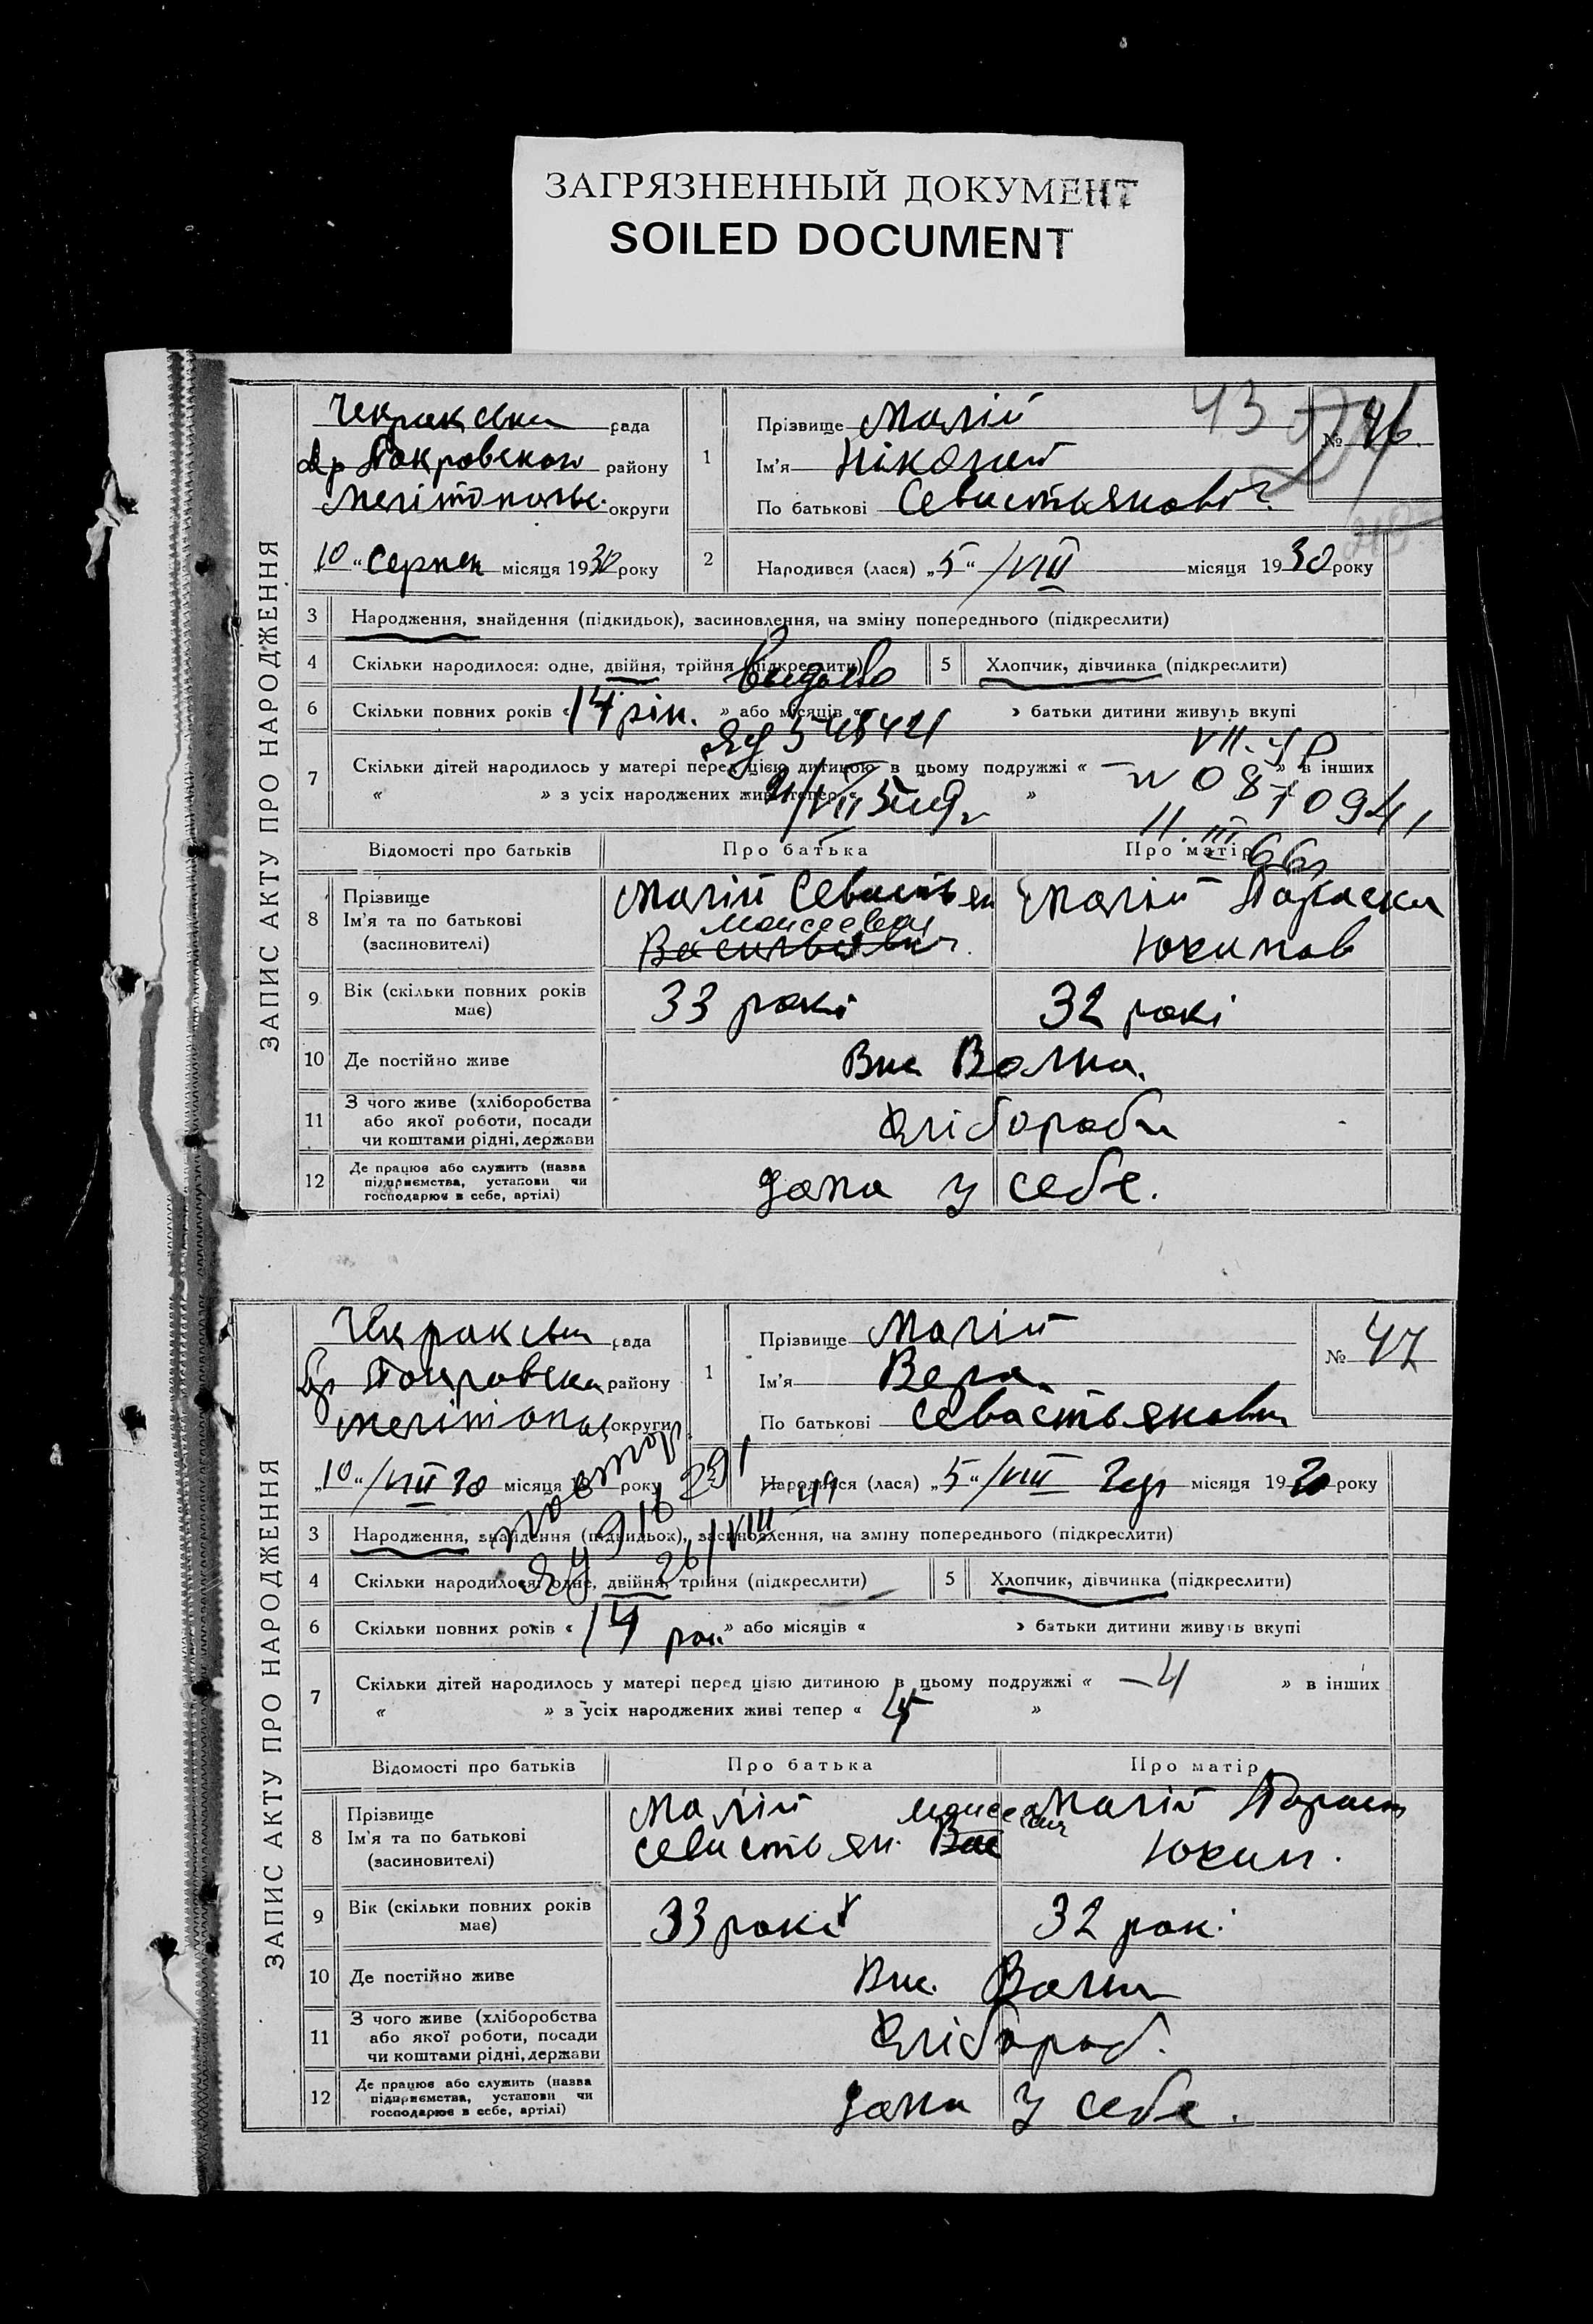 ЗАГРЯЗНЕННЫЙ ДОКУМЕНТ
SOILED DOCUMENT
ЗАПИС АКТУ ПРО НАРОДЖЕННЯ
рада
району
округи
10 " Серпен місяця 1930 року
1
Прізвище Малій
Ім'я Ніколай
По батькові Севастьянович
43
№ 46
2
Народився (лася) „5" /VIII місяця 1930 року
3 Народження, знайдення (підкидьок), засиновлення, на зміну попереднього (підкреслити)
4 Скільки народилося: одне, двійня, трійня (підкреслити)
5 Хлопчик, дівчинка (підкреслити)
6 Скільки повних років « 14 рік. » або місяців « » батьки дитини живуть вкупі
7 Скільки дітей народилось у матері перед цією дитиною в цьому подружжі « » в інших
« » з усіх народжених живі тепер « »
Відомості про батьків Про батька Про матір
8 Прізвище
Ім'я та по батькові
(засиновителі)
Малій Севастьян
Моисеевич
Васильевич
Малій Параска
Юхимов
9 Вік (скільки повних років має) 33 рокі 32 рокі
10 Де постійно живе Вис Волна.
11 З чого живе (хліборобства або якої роботи, посади чи коштами рідні, держави Хлібороби
12 Де працює або служить (назва підприємства, установи чи господарює в себе, артілі) дома у себе.
ЗАПИС АКТУ ПРО НАРОДЖЕННЯ
рада
району
округи
„10" /VIII 30 місяця року
1
Прізвище Малій
Ім'я Вера
По батькові Севастьяновна
№ 47
Народився (лася) „5" /VIII місяця 1930 року
повтор
3 Народження, знайдення (підкидьок), засиновлення, на зміну попереднього (підкреслити)
4 Скільки народилося: одне, двійня, трійня (підкреслити)
5 Хлопчик, дівчинка (підкреслити)
6 Скільки повних років « 14 рок » або місяців « » батьки дитини живуть вкупі
7 Скільки дітей народилось у матері перед цією дитиною в цьому подружжі « – 4 » в інших
« » з усіх народжених живі тепер « »
Відомості про батьків Про батька Про матір
8 Прізвище
Ім'я та по батькові
(засиновителі)
Малій Моисеевич
Севастьян. Вас
Малій Параск
Юхим.
9 Вік (скільки повних років має) 33 рокі 32 рок.
10 Де постійно живе Вис. Волна
11 З чого живе (хліборобства або якої роботи, посади чи коштами рідні, держави Хлібороб.
12 Де працює або служить (назва підприємства, установи чи господарює в себе, артілі) дома у себе.